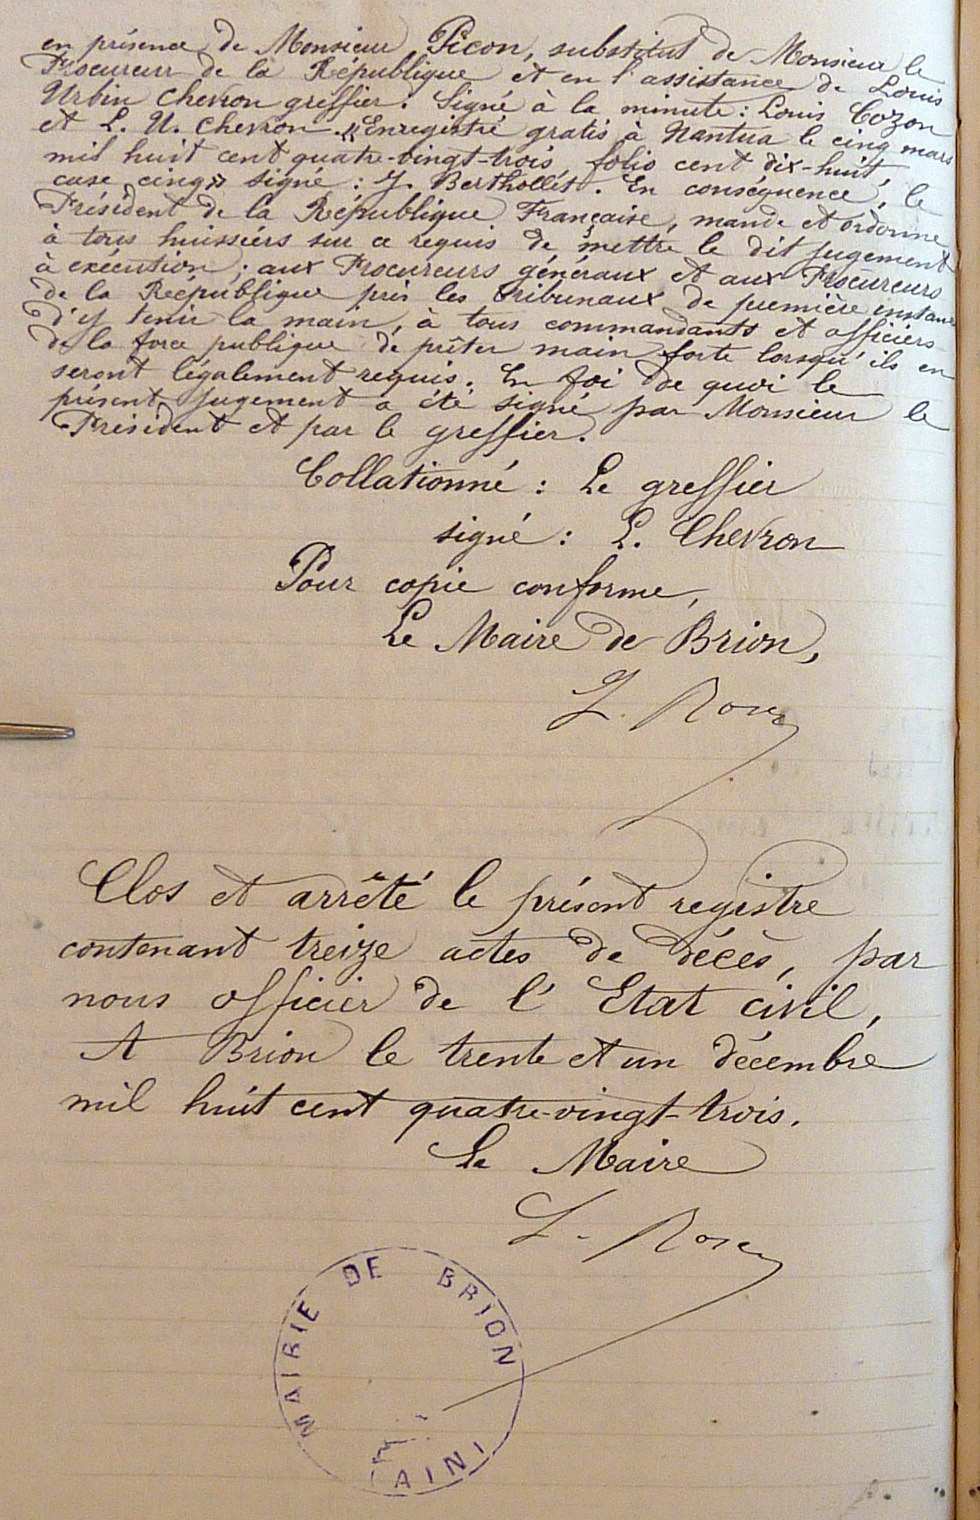 en présence de Monsieur Picon, substitut de Monsieur le
Procureur de la République et en l'assistance de Louis
Urbin Chevron greffier. Signé à la minute : Louis Cozon
et L. U. Chevron. "Enregistré gratis à Nantua le cinq mars
mil huit cent quatre-vingt-trois, folio cent dix-huit,
case cinq" signé : J. Berthollet. En conséquence, le
Président de la République Française, mande et ordonne
à tous huissiers sur ce requis de mettre le dit jugement
à exécution ; aux Procureurs généraux et aux Procureurs
de la République près les tribunaux de première instance
d'y tenir la main, à tous commandants et officiers
de la force publique de prêter main forte lorsqu'ils en
seront légalement requis. En foi de quoi le
présent jugement a été signé par Monsieur le
Président et par le greffier.
Collationné : Le greffier
signé : L. Chevron
Pour copie conforme,
Le Maire de Brion,
Clos et arrêté le présent registre
contenant treize actes de décès, par
nous officier de l'Etat civil,
A Brion le trente et un décembre
mil huit cent quatre-vingt-trois.
Le Maire
MAIRIE DE BRION
AIN